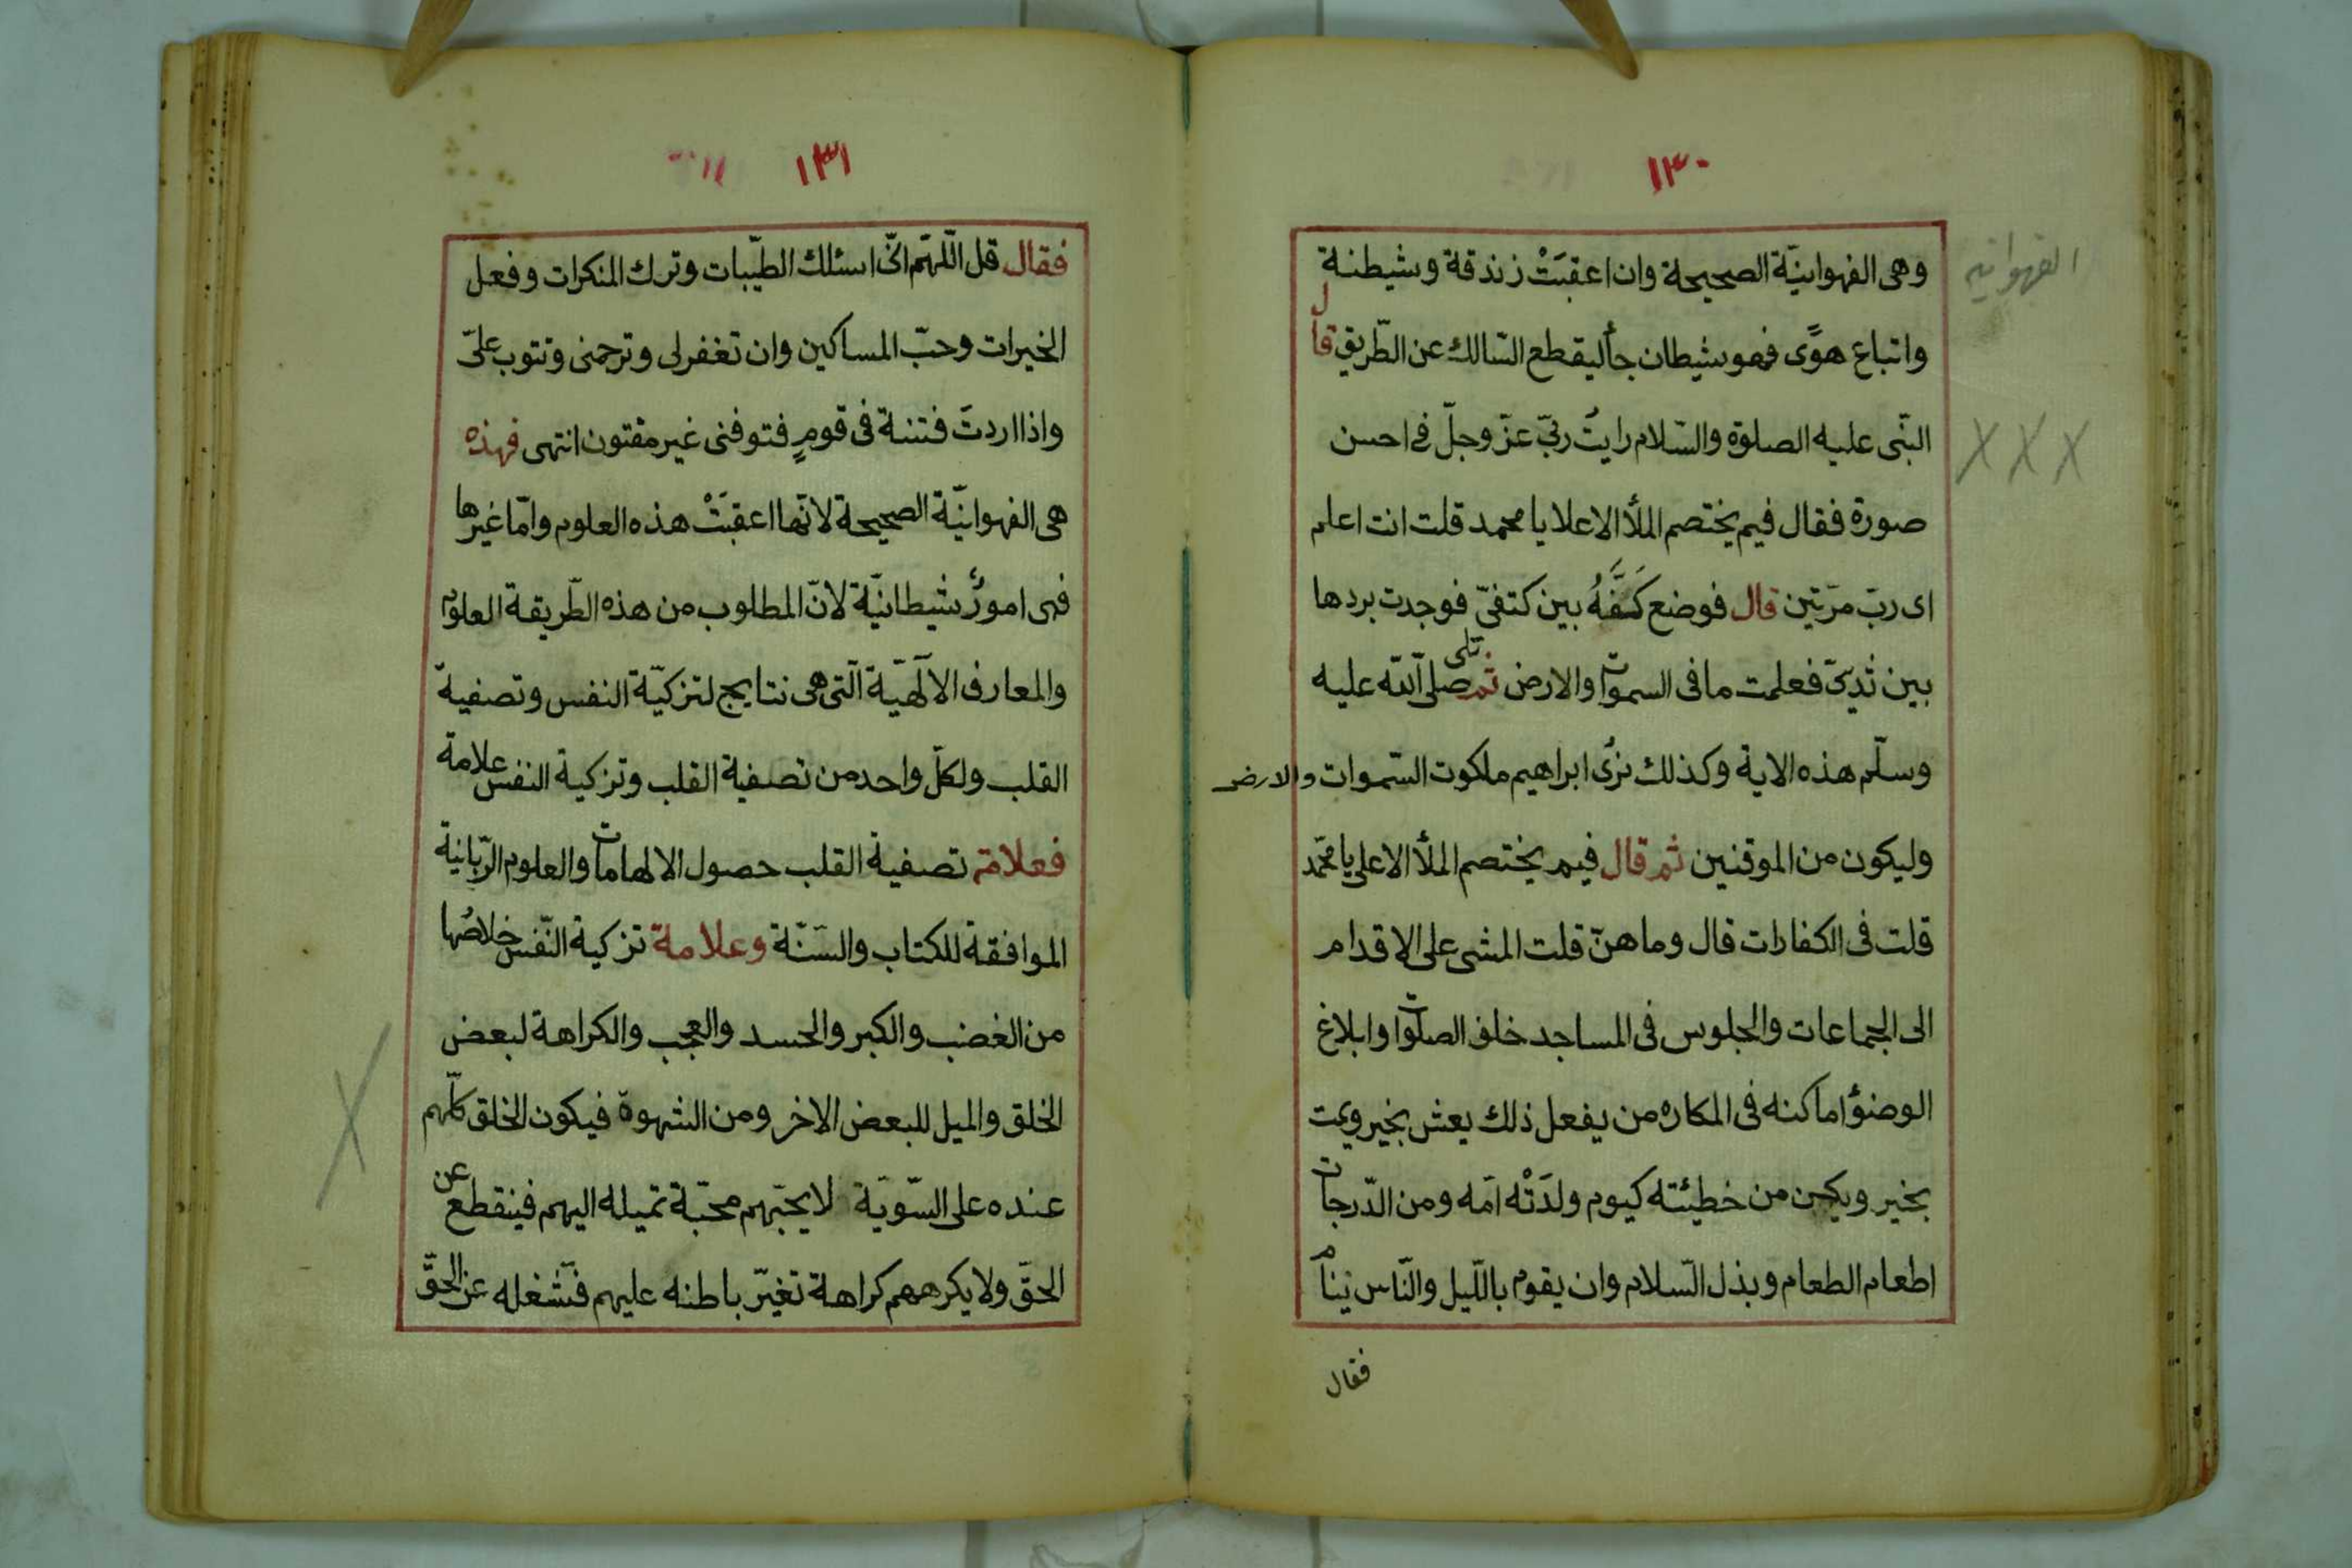 ١٣٠
الفهوانيه
وهى الفهوانيّة الصحيحة وان اعقبَتْ زندقة وشيطنة
واتباع هوًى فهو شيطان جأ ليقطع السّالك عن الطّريق قال
النّبى عليه الصلوة والسّلام رايتُ ربّى عزّ وجلّ فى احسن
صورة فقال فيم يختصم الملأ الاعلا يا محمد قلت انت اعلم
اى ربّ مرّتين قال فوضع كَفَّهُ بين كتفىّ فوجدت بردها
بين ثديىّ فعلمت ما فى السموات والارض ثم تلى صلى الله عليه
وسلّم هذه الاية وكذلك نرى ابراهيم ملكوت السّموات والارض
وليكون من الموقنين ثم قال فيم يختصم الملأ الاعلى يا محمّد
قلت فى الكفارات قال وما هنّ قلت المشى على الاقدام
الى الجماعات والجلوس فى المساجد خلف الصلوات وابلاغ
الوضؤ اماكنه فى المكاره من يفعل ذلك يعش بخير ويمت
بخير ويكن من خطيئته كيوم ولدَتْه امّه ومن الدّرجات
اطعام الطعام وبذل السّلام وان يقوم باللّيل والنّاس نيام
فقال
١٣١
فقال قل اللّهمّ انّى اسئلك الطيّبات وترك المنكرات وفعل
الخيرات وحبّ المساكين وان تغفر لى وترحمنى وتتوب علىّ
واذا اردتَ فتنة فى قومٍ فتوفنى غير مفتون انتهى فهذه
هى الفهوانيّة الصحيحة لانّها اعقبَتْ هذه العلوم وامّا غيرها
فهى امورٌ شيطانيّة لانّ المطلوب من هذه الطّريقة العلوم
والمعارف الالٓهيّة الّتى هى نتايج لتزكيّة النفس وتصفية
القلب ولكلّ واحد من تصفية القلب وتزكية النفس علامة
فعلامة تصفية القلب حصول الالهامات والعلوم الرّبّانية
الموافقة للكتاب والسّنّة وعلامة تزكية النّفس خلاصُها
من الغضب والكبر والحسد والعجب والكراهة لبعض
الخلق والميل للبعض الاخر ومن الشهوة فيكون الخلق كلّهم
عنده على السّويّة لا يحبّهم محبّة تميله اليهم فينقطع عن
الحقّ ولا يكرههم كراهة تغيّر باطنه عليهم فتشغله عن الحقّ